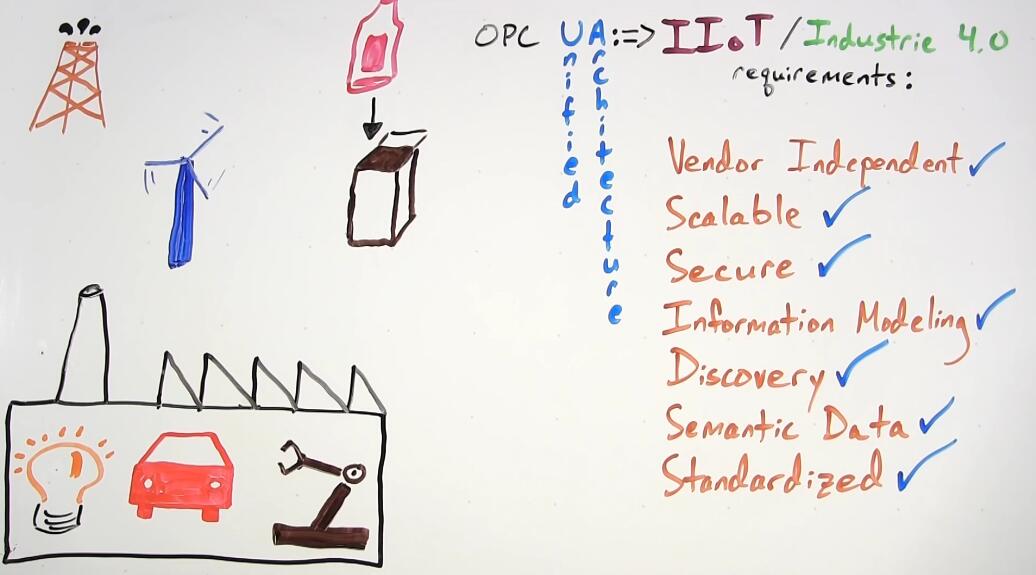 OPC UA :=> IIoT / Industrie 4.0
Unified
Architecture
requirements:
Vendor Independent ✓
Scalable ✓
Secure ✓
Information Modeling ✓
Discovery ✓
Semantic Data ✓
Standardized ✓